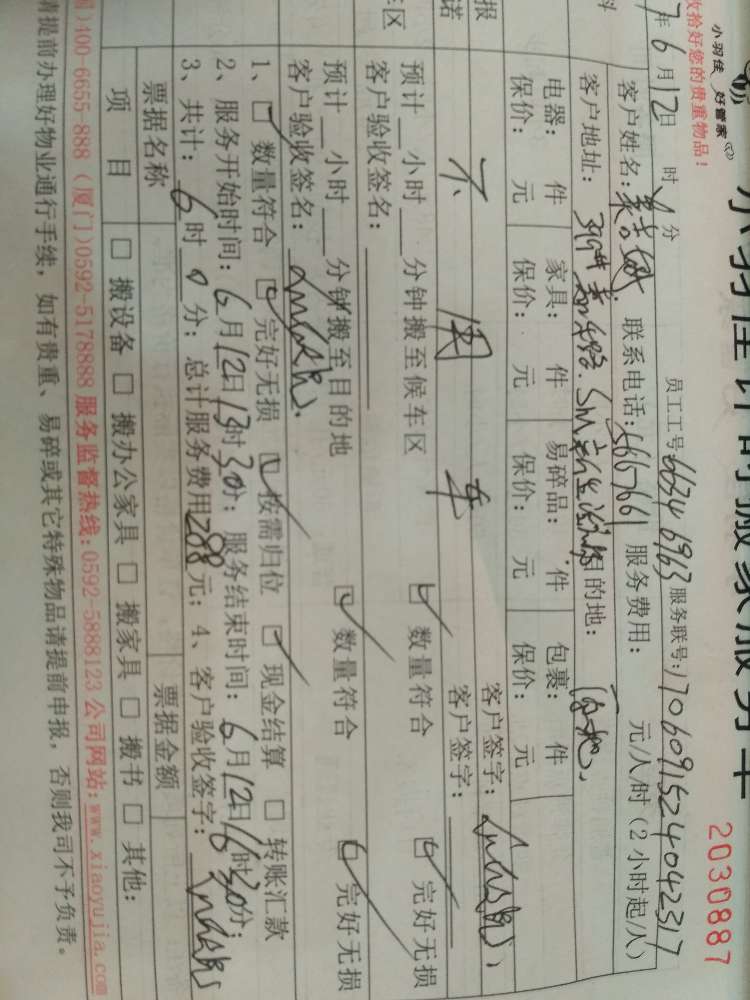 小羽佳 好管家
收拾好您的贵重物品！
2030887
员工工号:6634 6963 服务联号:170609152404 2317
7年6月12日 时 分
客户姓名: 联系电话:5667661 服务费用: 元/人/时(2小时起/人)
客户地址: 目的地:
电器: 件 家具: 件 易碎品: 件 包裹: 件
保价: 元 保价: 元 保价: 元 保价: 元
不 用 车
客户签字:
客户签字:
预计 小时 分钟搬至候车区 数量符合 完好无损
客户验收签名:
预计 小时 分钟搬至目的地 数量符合 完好无损
客户验收签名:
1、 数量符合 完好无损 按需归位 现金结算 转账汇款
2、服务开始时间: 6月12日13时30分; 服务结束时间: 6月12日16时30分;
3、共计: 6时0分; 总计服务费用288元; 4、客户验收签字:
票据名称 票据金额
项 目 搬设备 搬办公家具 搬家具 搬书 其他:
)400-6655-888 (厦门)0592-5178888 服务监督热线:0592-5888123 公司网站:www.xiaoyujia.com
请提前办理好物业通行手续，如有贵重、易碎或其它特殊物品请提前申报，否则我司不予负责。